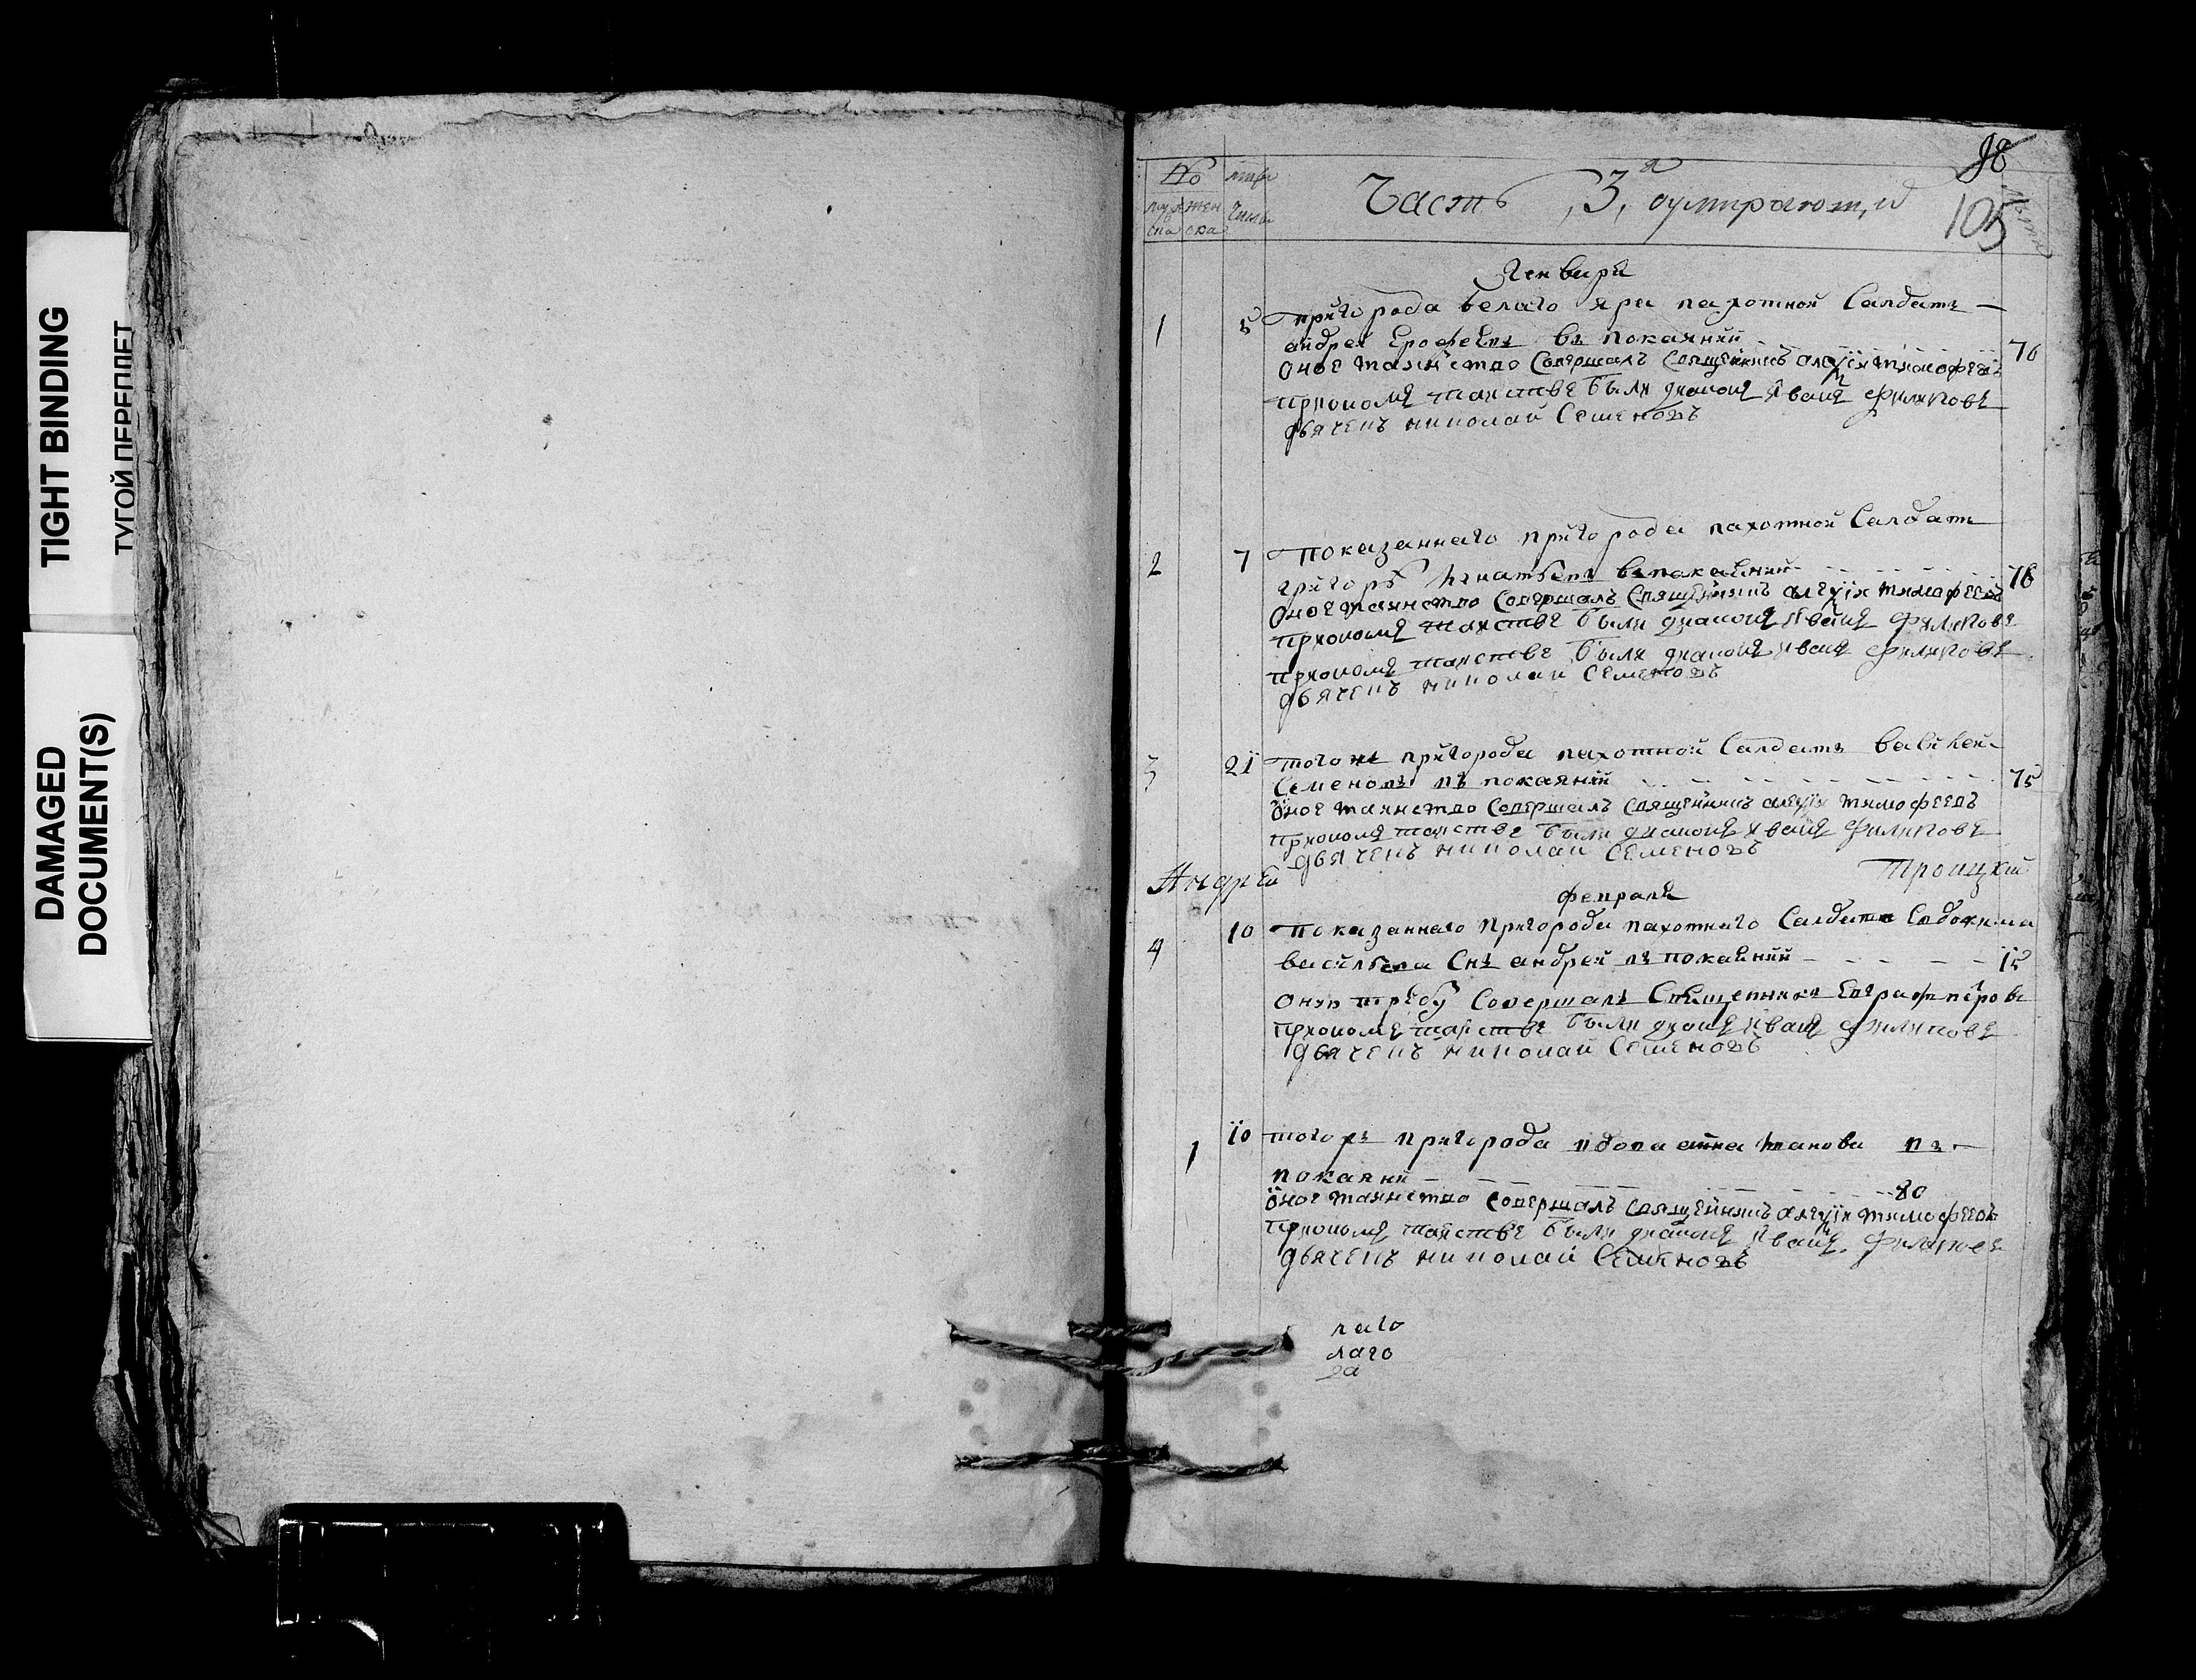 TIGHT BINDING
ТУГОЙ ПЕРЕПЛЕТ
DAMAGED
DOCUMENT(S)
98
105
№
мужеска
женска
числа
Часть 3я оумирающих
Генваря
1 5 пригорода белаго яра пахотной Салдатъ
андрей Ерофеевъ въ покаянии 76
оное таинство Совершалъ Священникъ алеѯiи тимофеевъ
приономъ таинстве были диаконъ иванъ филиповъ
дьячекъ николай Семеновъ
2 7 показаннаго пригорода пахотной Салдатъ
григорь игнатьевъ въ покаянии 76
оное таинство Совершалъ Священникъ алеѯiи тимофеевъ
приономъ таинстве были диаконъ иванъ филиповъ
приономъ таинстве были диаконъ иванъ филиповъ
дьячекъ николай Семеновъ
3 21 того жъ пригорода пахотной Салдатъ василей
Семеновъ въ покаянии 75
оное таинство Совершалъ Священникъ алеѯiи тимофеевъ
приономъ таинстве были диаконъ иванъ филиповъ
дьячекъ николай Семеновъ
Андрей Троицкий
февраля
4 10 показаннаго пригорода пахотнаго Салдата Евдокима
васильева Снъ андрей въ покаянии 15
оную требу Совершалъ Священникъ Евграф петровъ
приономъ таинстве были диаконъ иванъ филиповъ
дьячекъ николай Семеновъ
1 10 того жъ пригорода вдова анна иванова въ
покаянии 80
оное таинство Совершалъ Священникъ алеѯiи тимофеевъ
приономъ таинстве были диаконъ иванъ филиповъ
дьячекъ николай Семеновъ
лаго
лаго